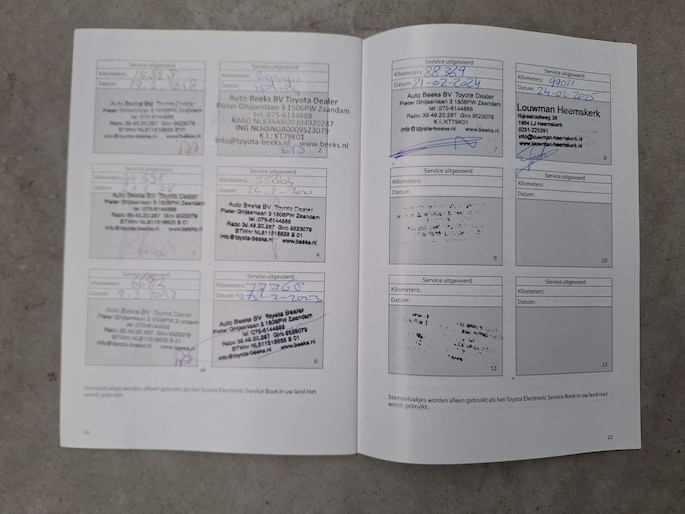 Service uitgevoerd
Kilometers: 15328
Datum: 19.3.2018
Auto Beeks BV Toyota Dealer
Pieter Ghijsenlaan 3 1506PW Zaandam
tel: 075-6144888
Rabo 39.49.20.287 Giro 9523079
BTWnr NL811516635 B 01
info@toyota-beeks.nl www.beeks.nl
Service uitgevoerd
Kilometers:
Datum:
Auto Beeks BV Toyota Dealer
Pieter Ghijsenlaan 3 1506PW Zaandam
tel: 075-6144888
K.I.: KT79K01
info@toyota-beeks.nl www.beeks.nl
2
Service uitgevoerd
Kilometers:
Datum:
Auto Beeks BV Toyota Dealer
Pieter Ghijsenlaan 3 1506PW Zaandam
tel: 075-6144888
Rabo 39.49.20.287 Giro 9523079
BTWnr NL811516635 B 01
info@toyota-beeks.nl www.beeks.nl
Service uitgevoerd
Kilometers:
Datum:
Auto Beeks BV Toyota Dealer
Pieter Ghijsenlaan 3 1506PW Zaandam
tel: 075-6144888
Rabo 39.49.20.287 Giro 9523079
BTWnr NL811516635 B 01
info@toyota-beeks.nl www.beeks.nl
4
Service uitgevoerd
Kilometers:
Datum:
Auto Beeks BV Toyota Dealer
Pieter Ghijsenlaan 3 1506PW Zaandam
tel: 075-6144888
Rabo 39.49.20.287 Giro 9523079
BTWnr NL811516635 B 01
info@toyota-beeks.nl www.beeks.nl
Service uitgevoerd
Kilometers: 77365
Datum:
Auto Beeks BV Toyota Dealer
Pieter Ghijsenlaan 3 1506PW Zaandam
tel: 075-6144888
Rabo 39.49.20.287 Giro 9523079
BTWnr NL811516635 B 01
info@toyota-beeks.nl www.beeks.nl
6
Stempelvakjes worden alleen gebruikt als het Toyota Electronic Service Book in uw land niet
wordt gebruikt.
24
Service uitgevoerd
Kilometers: 88369
Datum: 21-02-2024
Auto Beeks BV Toyota Dealer
Pieter Ghijsenlaan 3 1506PW Zaandam
tel: 075-6144888
Rabo 39.49.20.287 Giro 9523079
K.I.: KT79K01
info@toyota-beeks.nl www.beeks.nl
7
Service uitgevoerd
Kilometers: 99011
Datum: 24-02-2025
Louwman Heemskerk
Rijksstraatweg 38
1964 LJ Heemskerk
0251-225391
info@louwman-heemskerk.nl
www.louwman-heemskerk.nl
8
Service uitgevoerd
Kilometers:
Datum:
9
Service uitgevoerd
Kilometers:
Datum:
10
Service uitgevoerd
Kilometers:
Datum:
11
Service uitgevoerd
Kilometers:
Datum:
12
Stempelvakjes worden alleen gebruikt als het Toyota Electronic Service Book in uw land niet
wordt gebruikt.
25